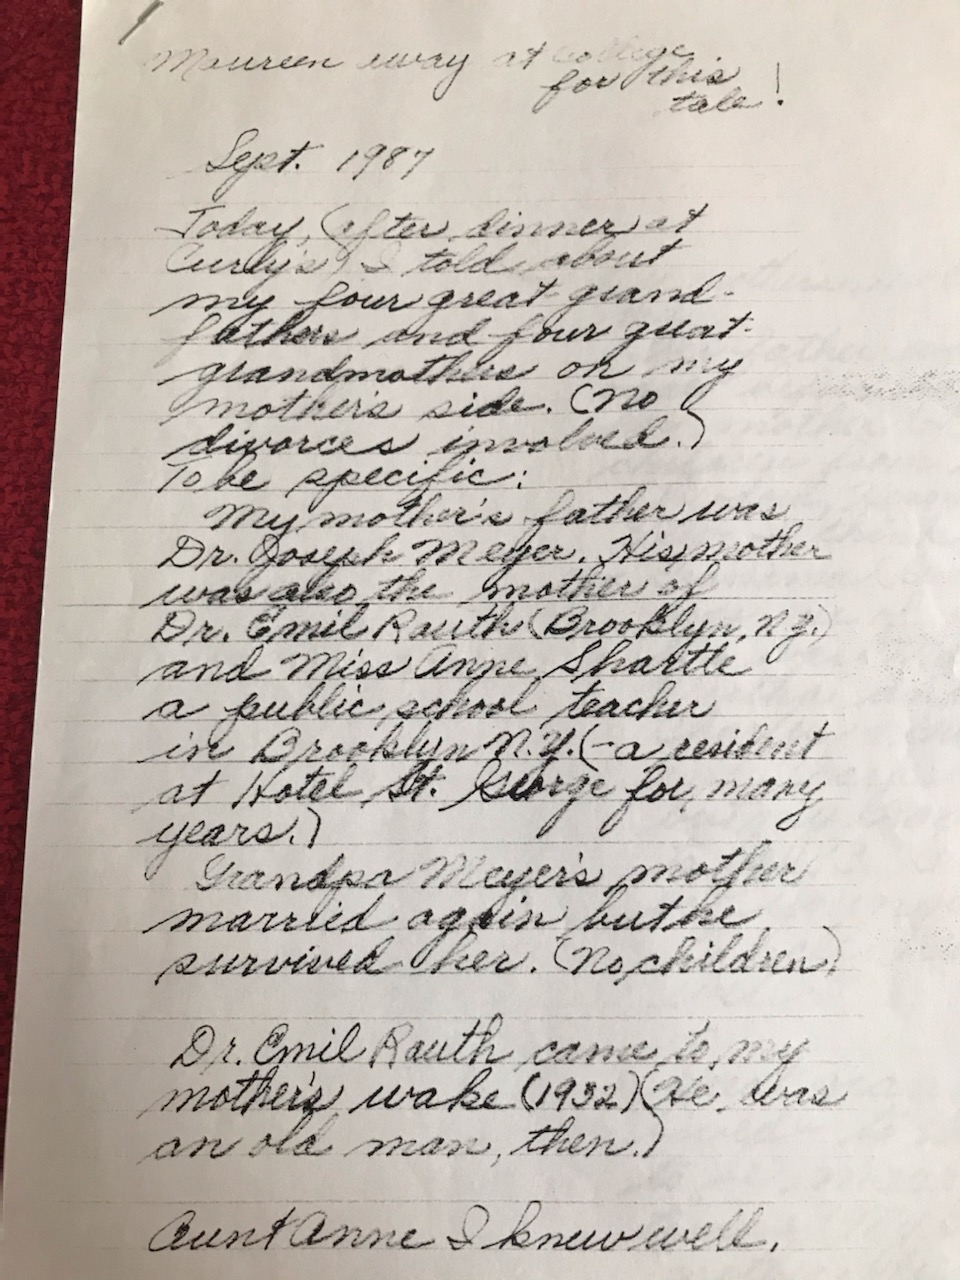 Maureen away at college
for this
tale!
Sept. 1987
Today, (after dinner at
Curly's) I told about
my four great-grand-
fathers and four great-
grandmothers on my
mother's side. (No
divorces involved.)
To be specific:
My mother's father was
Dr. Joseph Meyer. His mother
was also the mother of
Dr. Emil Rauth (Brooklyn, N.Y.)
and Miss Anne Shartle
a public school teacher
in Brooklyn N.Y. (-a resident
at Hotel St. George for many
years.)
Grandpa Meyer's mother
married again but he
survived her. (No children)
Dr. Emil Rauth came to my
mother's wake (1932) (He was
an old man, then.)
Aunt Anne I knew well.